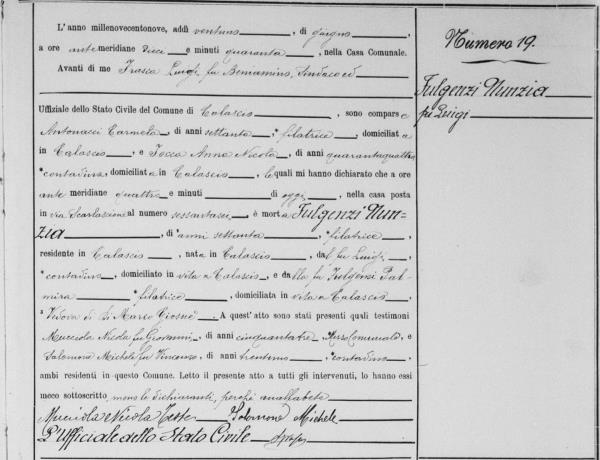 L'anno millenovecentonove, addì ventuno, di giugno,
a ore antemeridiane dieci e minuti quaranta, nella Casa Comunale.
Avanti di me Frasca Luigi, fu Beniamino, Sindaco ed
Uffiziale dello Stato Civile del Comune di Calascio, sono compars e
Antonacci Carmela, di anni settanta, filatrice, domiciliat a
in Calascio, e Anna Nicola, di anni quarantaquattro
contadina, domiciliat a in Calascio, le quali mi hanno dichiarato che a ore
ante meridiane quattro e minuti di oggi, nella casa posta
in via al numero sessantasei, è morta Fulgenzi Nun-
zia, di anni settanta, filatrice,
residente in Calascio, nata in Calascio, dal fu Luigi,
contadino, domiciliato in vita a Calascio, e dalla fu Fulgenzi Pal-
mira filatrice, domiciliata in vita a Calascio,
Vedova di Di Marco Giosuè. A quest'atto sono stati presenti quali testimoni
Nicola fu Giovanni, di anni cinquantatre Messo Comunale, e
Salomone Michele fu Vincenzo, di anni trentuno, contadino,
ambi residenti in questo Comune. Letto il presente atto a tutti gli intervenuti, lo hanno essi
meco sottoscritto, meno le dichiaranti, perchè analfabete
Nicola Teste Salomone Michele
L'ufficiale dello Stato Civile
Numero 19.
Fulgenzi Nunzia
fu Luigi